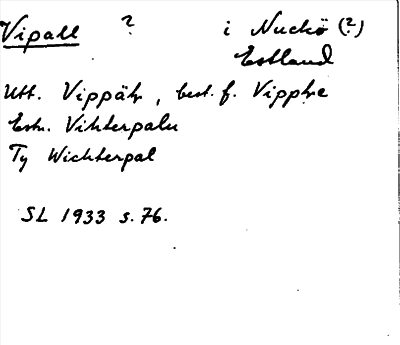 Vipall ? i Nuckö (?)
Estland
Utt. Vippäl, best. f. Vipple
Estn. Vihterpalu
Ty Wichterpal
SL 1933 s. 76.